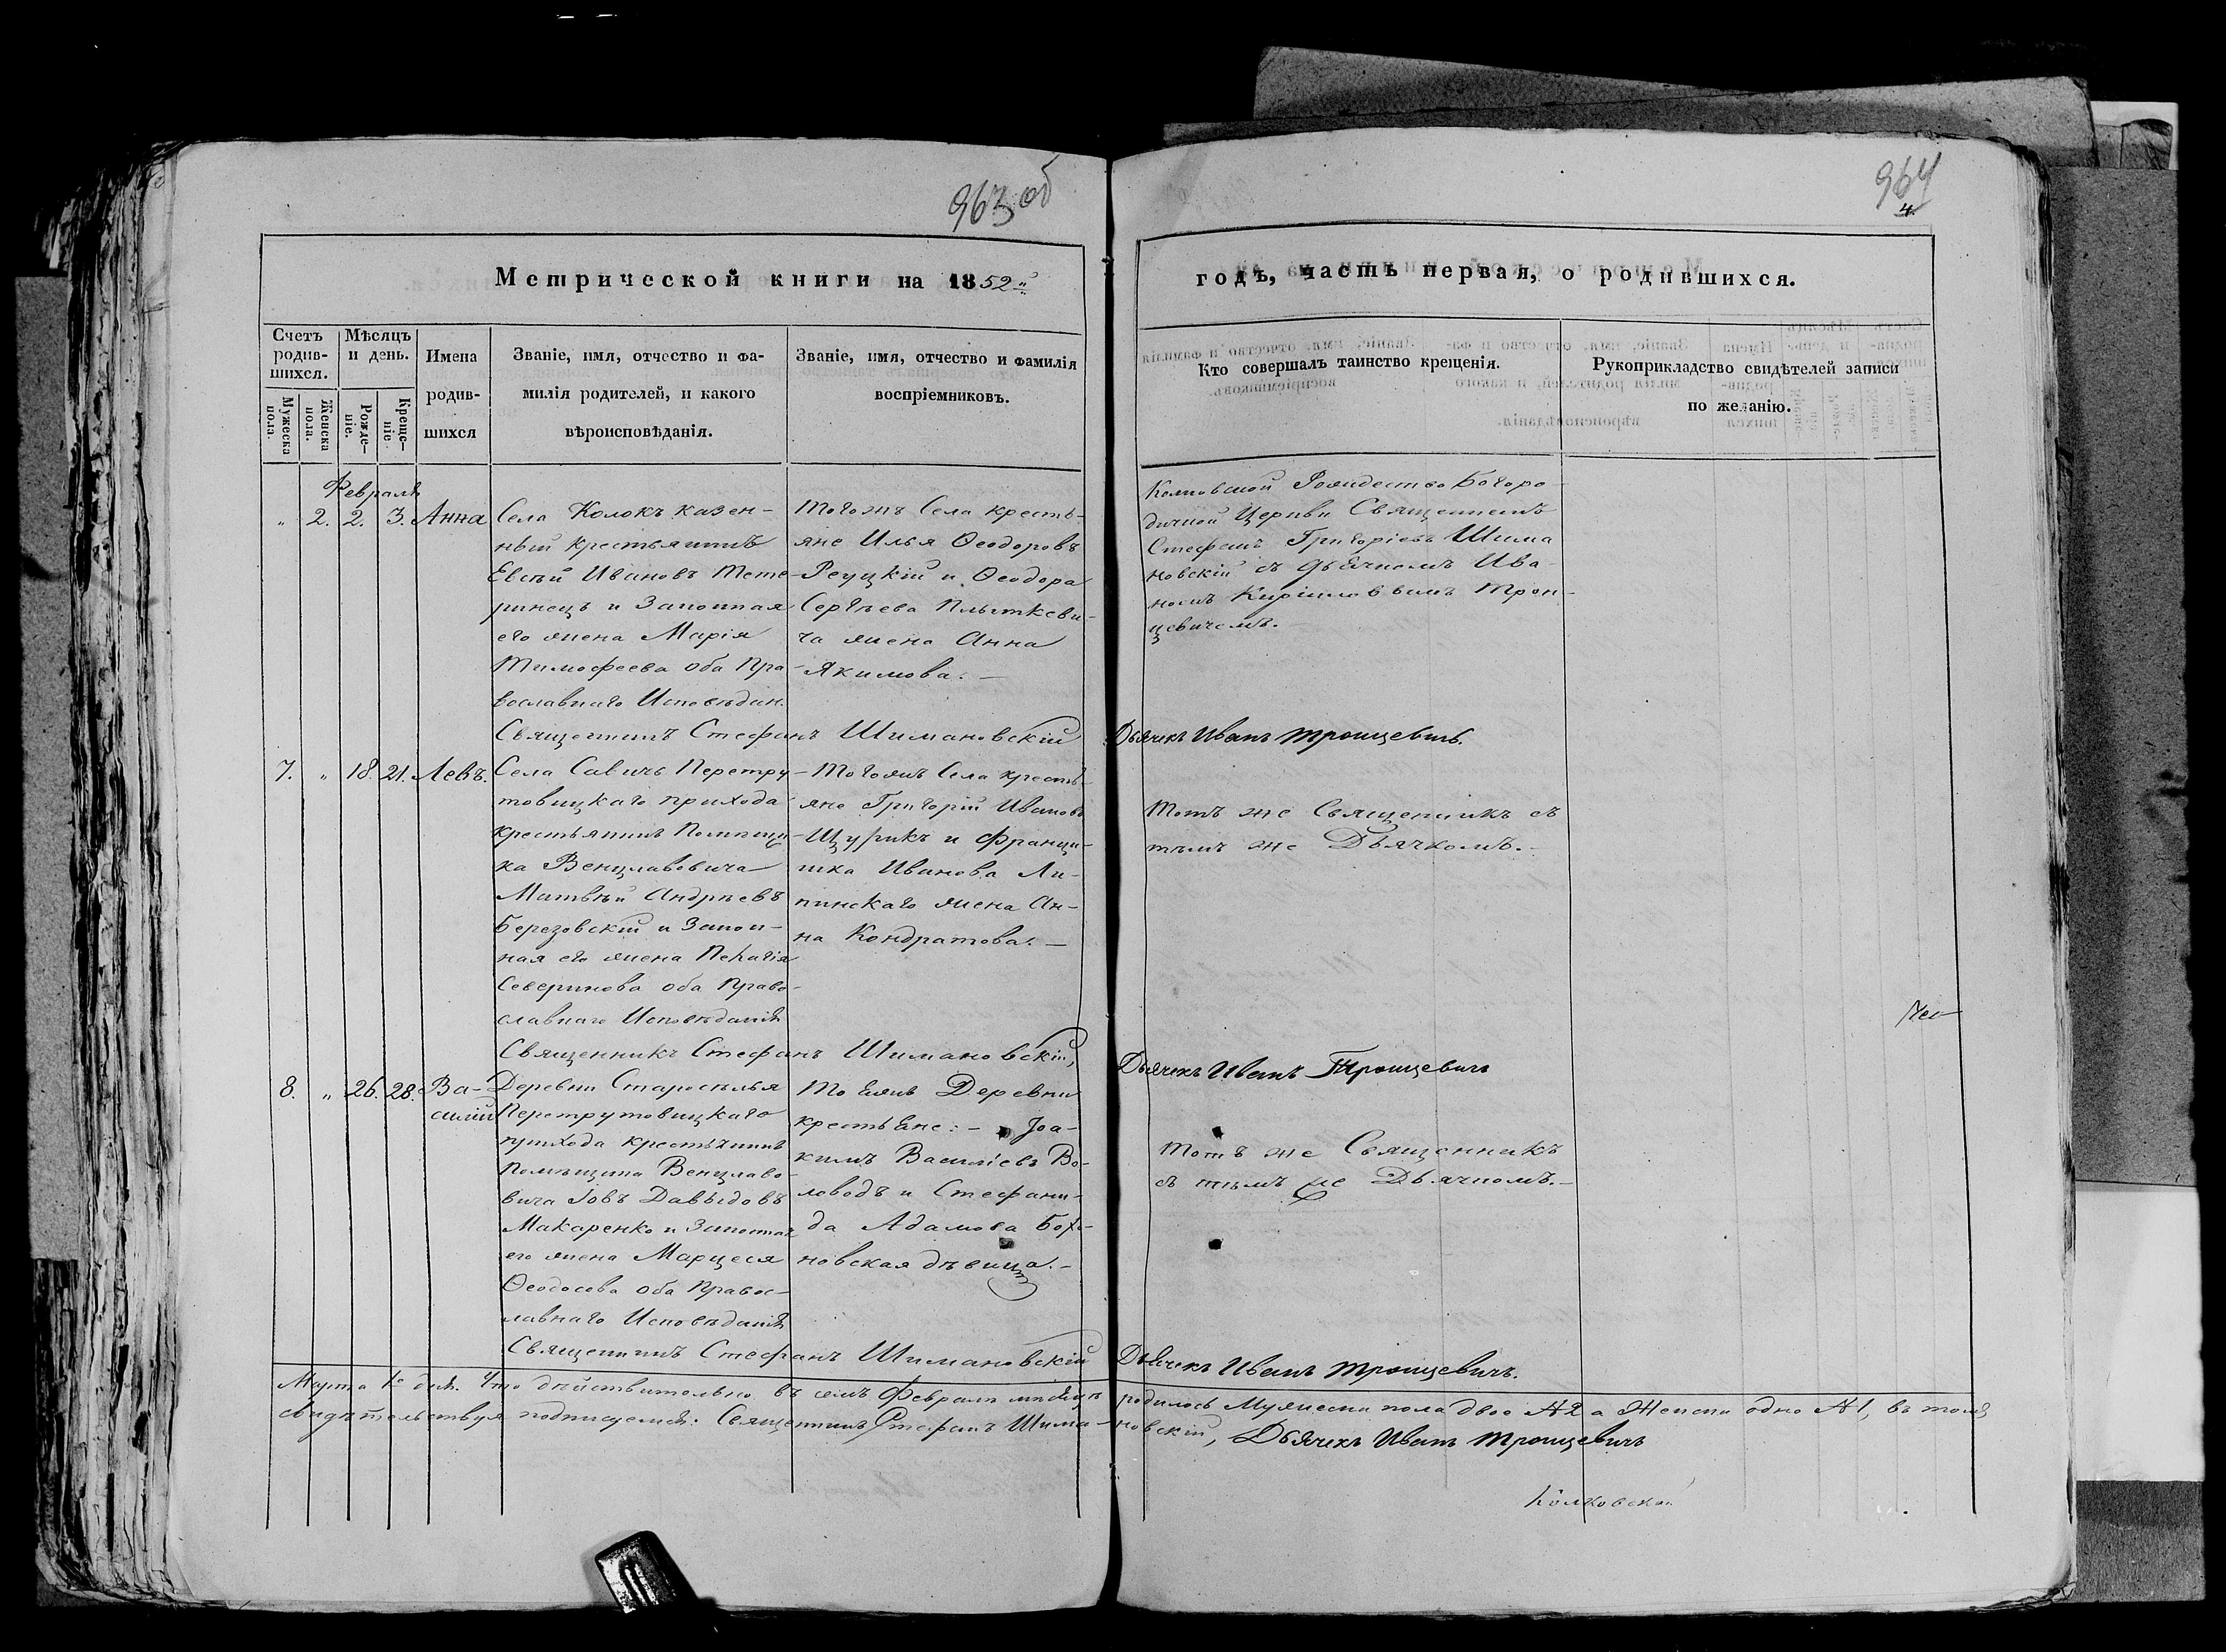 963 об
964
4.
Метрической книги на 1852й
годъ, часть первая, о родившихся.
Счетъ родив-
шихся.
Мужеска пола.
Женска пола.
Мѣсяцъ и день.
Рожде-
ніе.
Креще-
ніе.
Имена
родив-
шихся
Званіе, имя, отчество и фа-
милія родителей, и какого
вѣроисповѣданія.
Званіе, имя, отчество и фамилія
воспріемниковъ.
Кто совершалъ таинство крещенія.
Рукоприкладство свидѣтелей записи
по желанію.
Февраля
" 2. 2. 3. Анна
Села Колокъ казен-
ный крестьянинъ
Евсѣй Ивановъ Тете-
ринецъ и Законная
его жена Марія
Тимофеева оба Пра-
вославнаго Исповѣдан.
Тогожъ Села кресть-
яне Илья Ѳеодоровъ
Реуцкій и Ѳеодора
Сергѣева Плыткеви-
ча жена Анна
Якимова. –
Колковской Рождество Богоро-
дичной Церкви Священникъ
Стефанъ Григоріевъ Шима
новскій съ дьячкомъ Ива-
номъ Кирилловымъ Трои-
цевичемъ.
Священникъ Стефанъ Шимановскій
Дьячекъ Иванъ Троицевичъ.
7. " 18. 21. Левъ.
Села Савичъ Перетру-
товицкаго прихода
крестьянинъ Помѣщи-
ка Венцлавовича
Матвѣй Андреевъ
Березовскій и Закон-
ная его жена Пелагія
Северинова оба Право-
славнаго Исповѣданія
Тогожъ Села кресть-
яне Григорій Ивановъ
Щурикъ и Франци-
шка Иванова Ли-
пинскаго жена Ан-
на Кондратова. –
Тотъ же Священникъ съ
тѣмъ же Дьячкомъ. –
Священникъ Стефанъ Шимановскій,
Дьячекъ Иванъ Троицевичъ
8. " 26. 28. Ва-
силій
Деревни Старосѣлья
Перетрутовицкаго
прихода крестьянинъ
Помѣщика Венцлаво-
вича Іовъ Давыдовъ
Макаренко и Законная
его жена Марцеся
Ѳеодосова оба Правос-
лавнаго Исповѣданія
Тоежъ Деревни
крестьяне: – Іоа-
кимъ Василіевъ Во-
ловодъ и Стефани-
да Адамова Бохо-
новская дѣвица. –
Тотъ же Священникъ
съ тѣмъ же Дьячкомъ. –
Священникъ Стефанъ Шимановскій
Дьячекъ Иванъ Троицевичъ.
Марта 1го дня. Что дѣйствительно въ семъ Февралѣ мѣсяцѣ родилось Мужеска пола двое № 2 а Женска одно № 1, въ томъ
свидѣтельствуя подписуемся: Священникъ Стефанъ Шима-новскій, Дьячекъ Иванъ Троицевичъ
Колковской